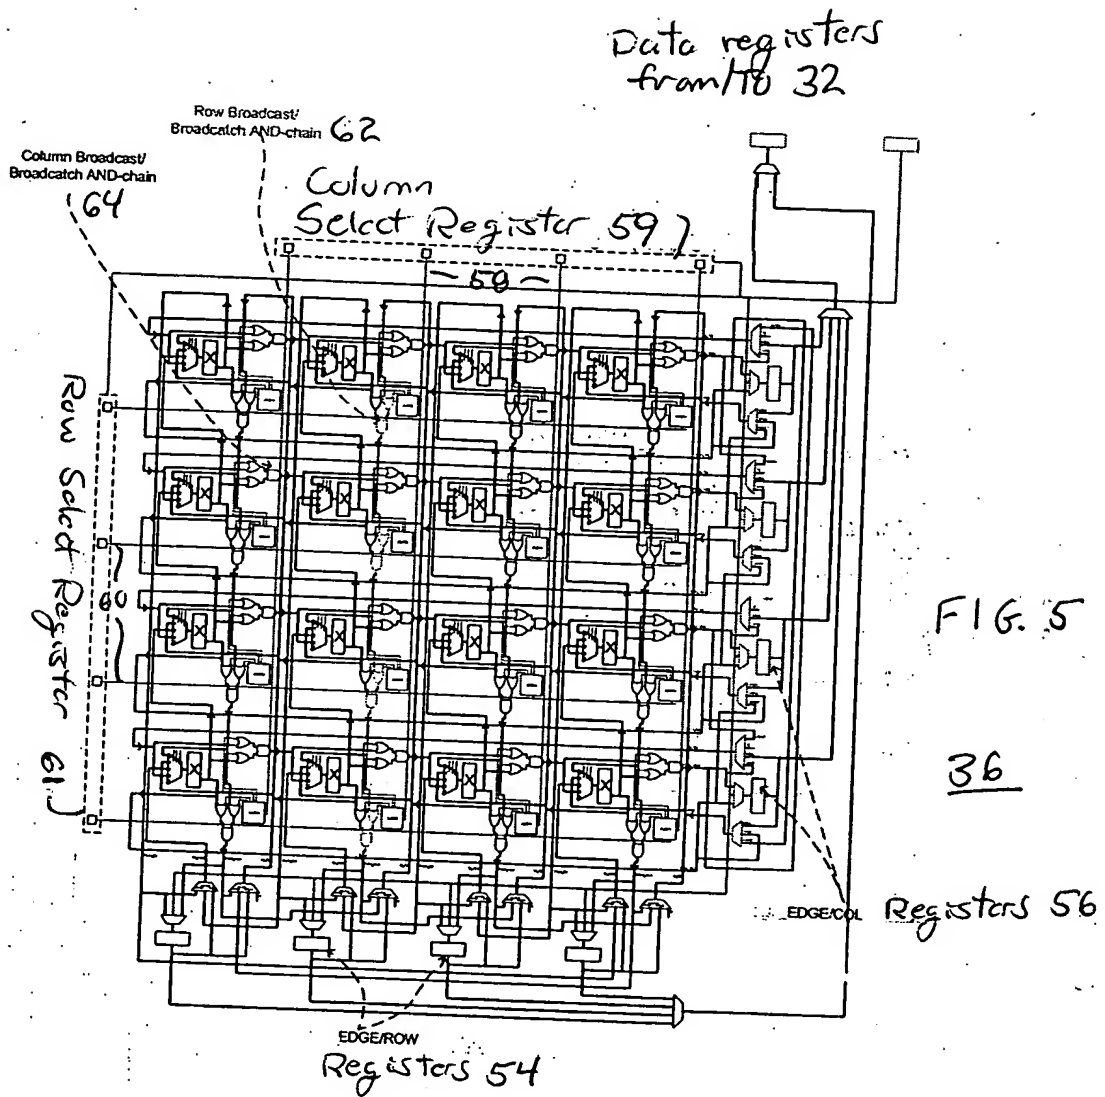 Data registers
from/To 32
Row Broadcast/
Broadcatch AND-chain 62
Column Broadcast/
Broadcatch AND-chain
64
Column
Select Register 59
58
Row Select Register 61
60
FIG. 5
36
EDGE/COL Registers 56
EDGE/ROW
Registers 54